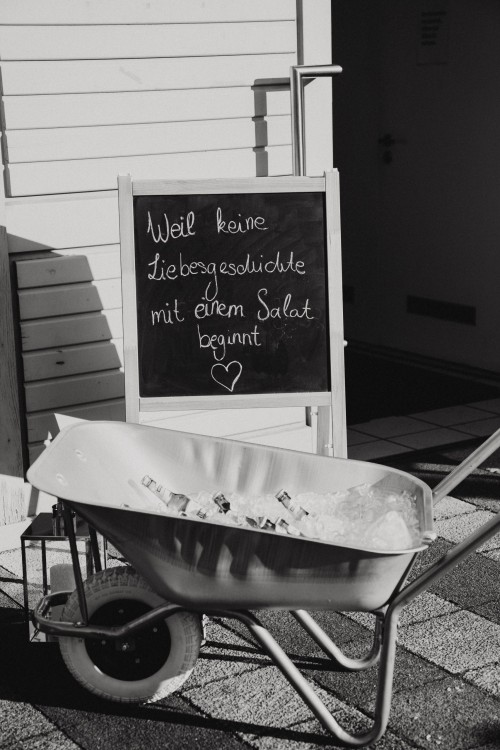 Weil keine
Liebesgeschichte
mit einem Salat
beginnt